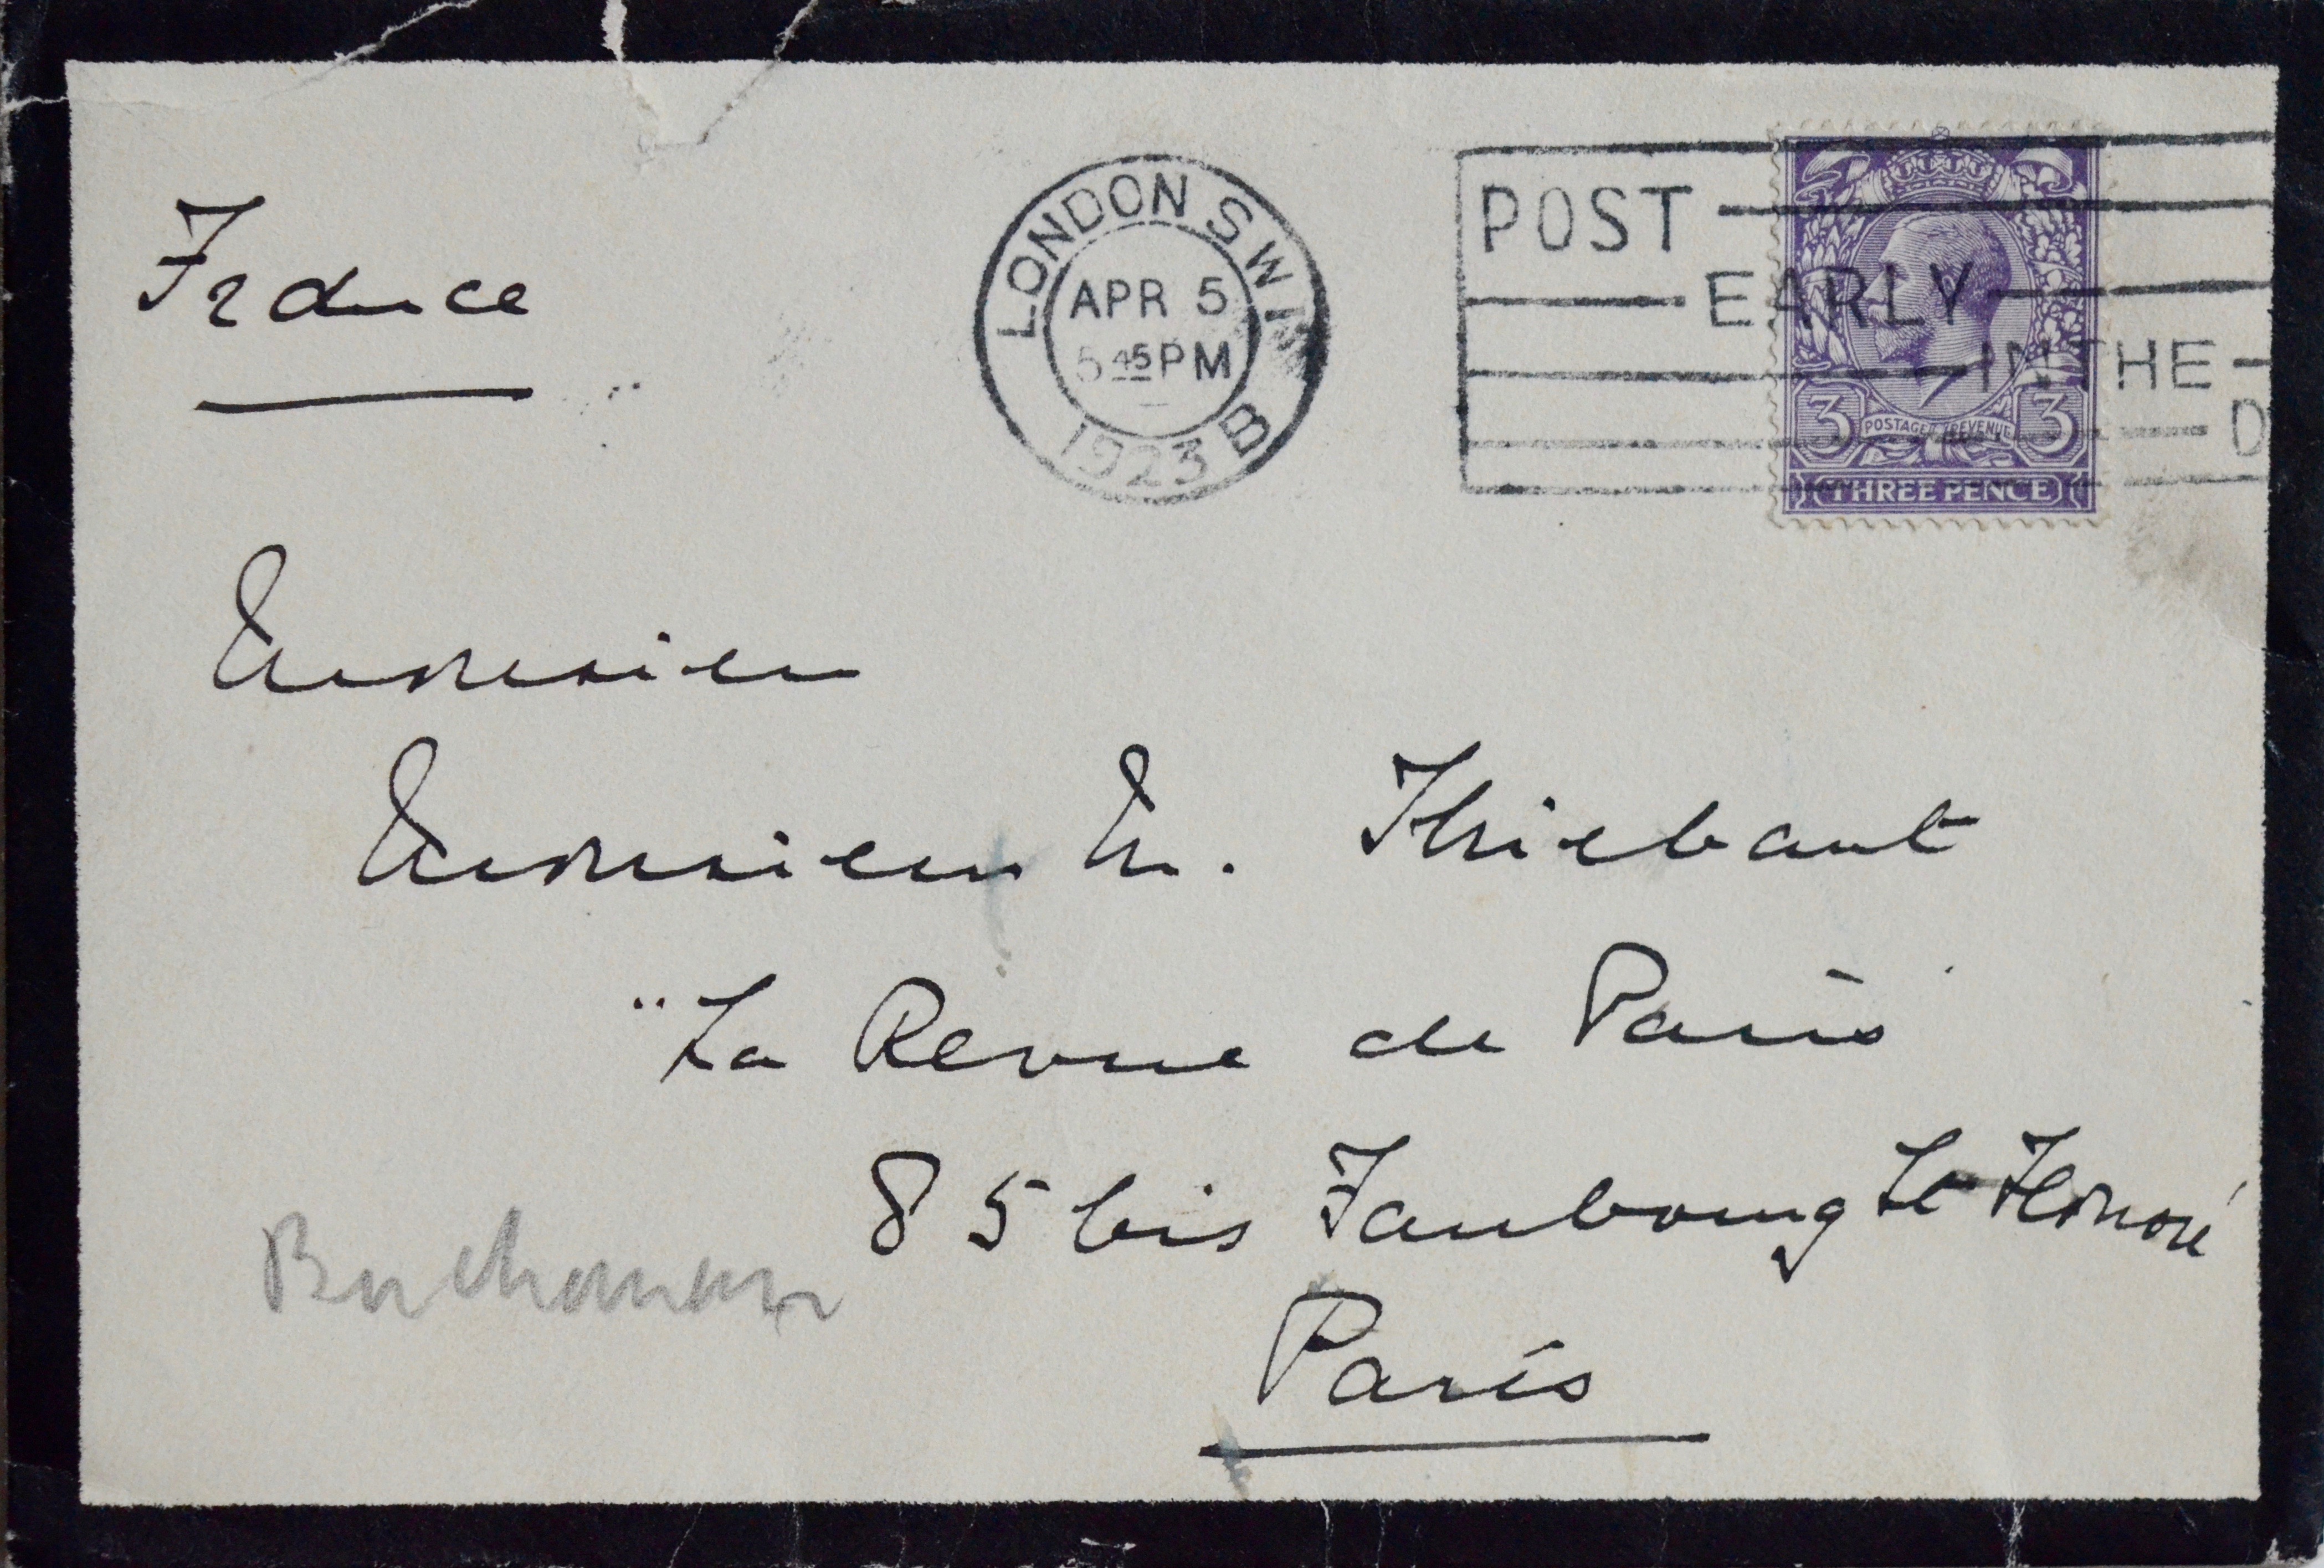 France
LONDON S.W.1
APR 5
5 45 PM
1923 B
POST
EARLY
IN THE
D
3 POSTAGE REVENUE 3
THREE PENCE
Monsieur
Monsieur M. Thiebaut
"La Revue de Paris"
85 bis Faubourg St Honoré
Buchanan
Paris